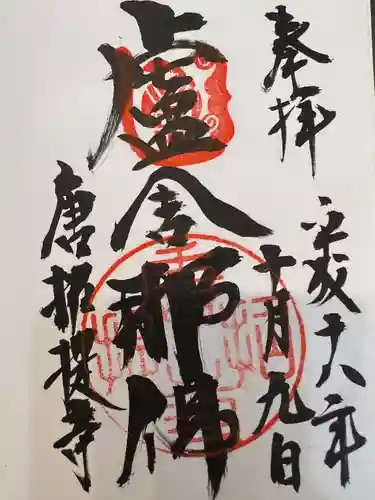 奉拝
平成十八年
十月九日
盧舎那佛
唐招提寺